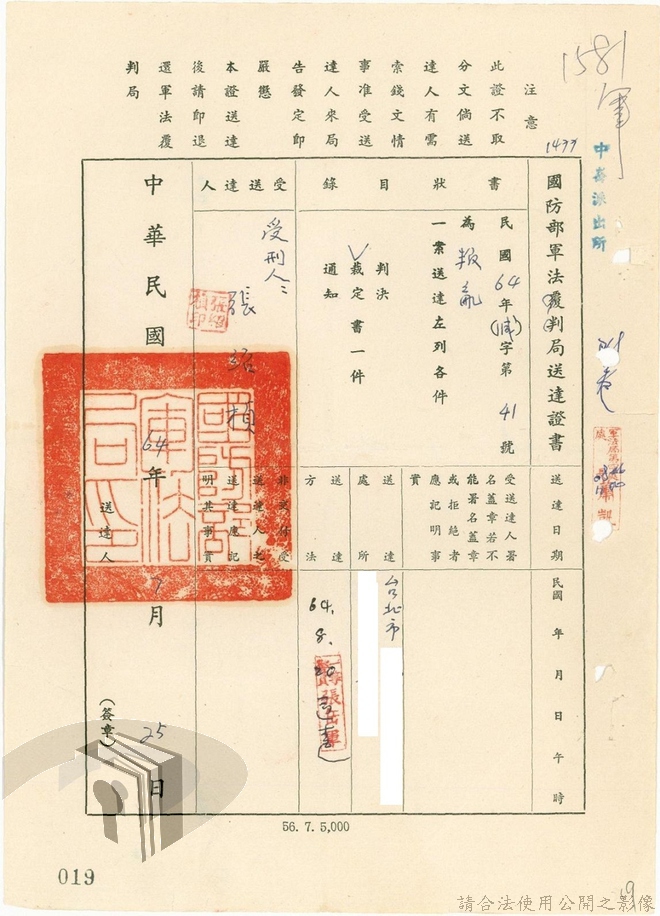 1581
軍
中崙派出所
1477
注意
此證不取
分文倘送
達人有需
索錢文情
事准受送
達人來局
告發定即
嚴懲
本證送達
後請即退
還軍法覆
判局
國防部軍法覆判局送達證書
送達日期
民國 年 月 日 午 時
書狀目錄
民國64年(減)字第41號
為叛亂
一案送達左列各件
判決
裁定書一件
通知
受送達人署
名蓋章若不
能署名蓋章
或拒絕者
應記明事
實
送達處所
台北市
送達方法
64.8.20
張岳軍
受送達人
受刑人:
張紹楨
張紹楨印
非交付受
送達人之
送達應記
明其事實
中華民國64年7月25日
國防部軍法局印
送達人
(簽章)
56. 7. 5,000
019
19
請合法使用公開之影像